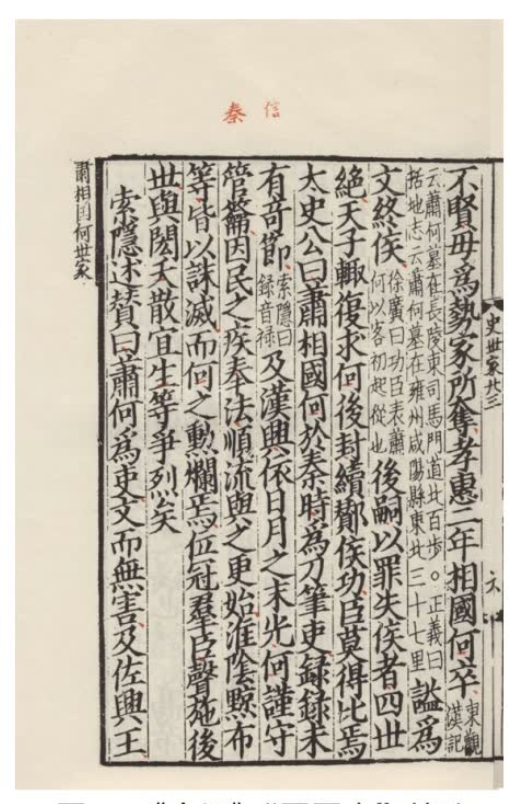 信
秦
史世家廿三
六
不賢毋爲勢家所奪孝惠二年相國何卒東觀漢記
云蕭何墓在長陵東司馬門道北百步。正義曰括地志云蕭何墓在雍州咸陽縣東北三十七里謚爲
文終侯徐廣曰功臣表蕭何以客初起從也後嗣以罪失侯者四世
絶天子輙復求何後封續酇侯功臣莫得比焉
太史公曰蕭相國何於秦時爲刀筆吏録録未
有奇節索隱曰録音禄及漢興依日月之末光何謹守
管籥因民之疾奉法順流與之更始淮陰黥布
等皆以誅滅而何之勲爛焉位冠羣臣聲施後
世與閎夭散宜生等爭烈矣
索隱述賛曰蕭何爲吏文而無害及佐興王
蕭相囯何世家